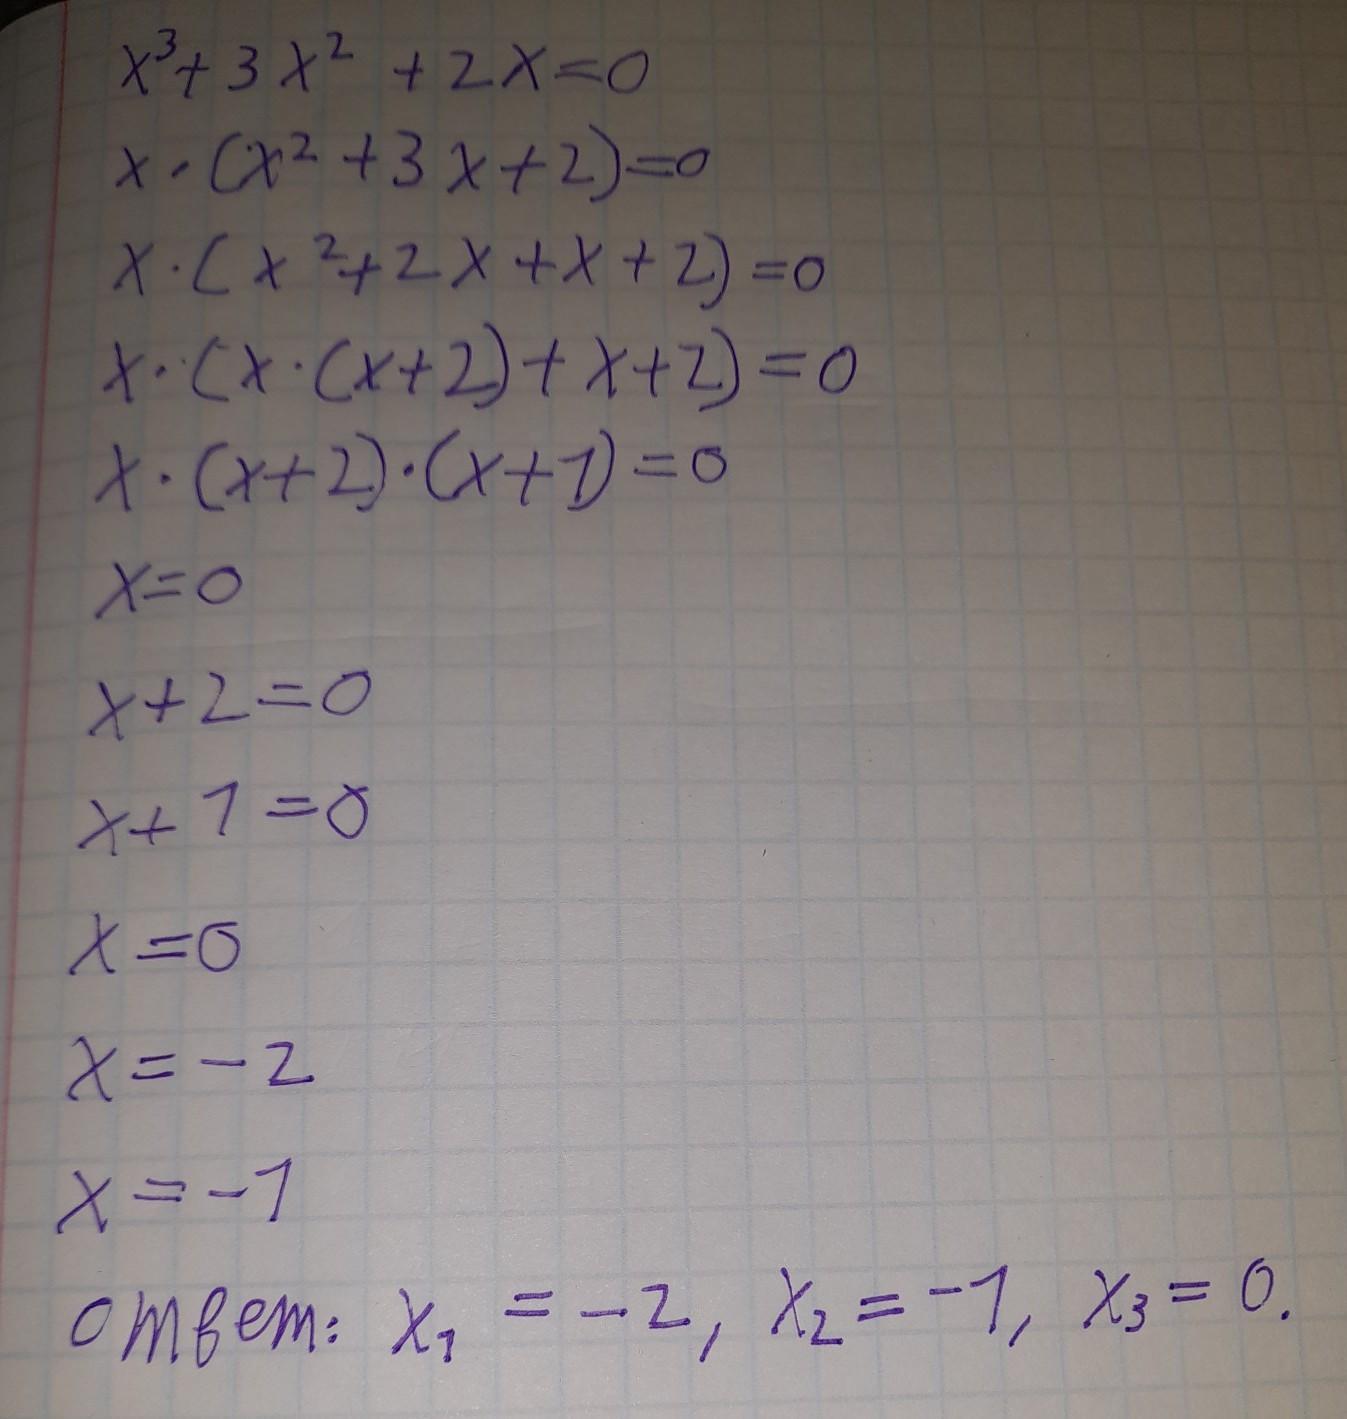 x³+3x²+2x=0
x·(x²+3x+2)=0
x·(x²+2x+x+2)=0
x·(x·(x+2)+x+2)=0
x·(x+2)·(x+1)=0
x=0
x+2=0
x+1=0
x=0
x=-2
x=-1
ответ: x₁=-2, x₂=-1, x₃=0.